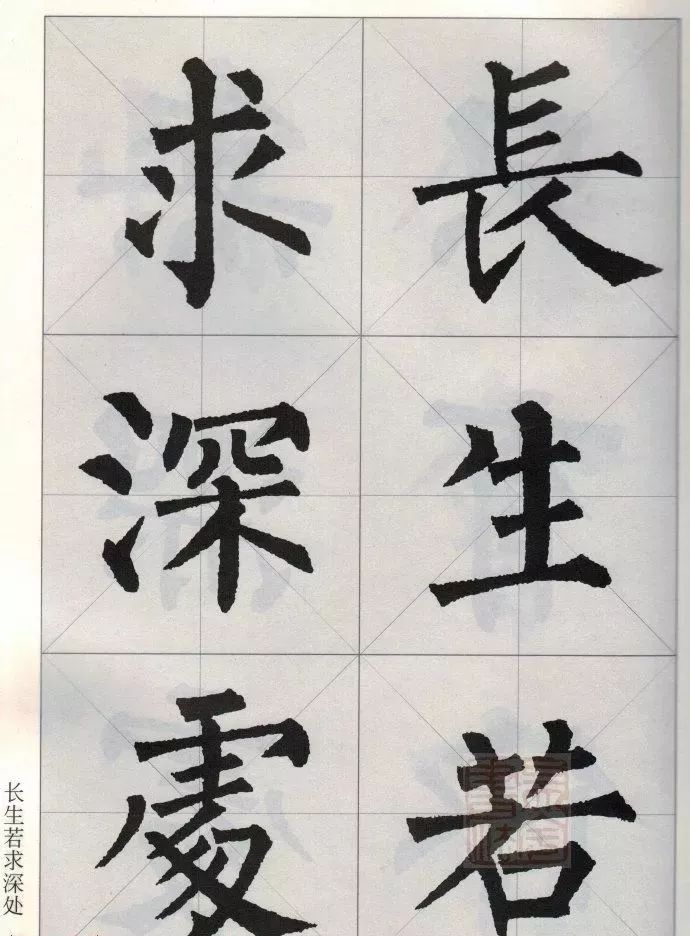 長生若
求深處
长生若求深处